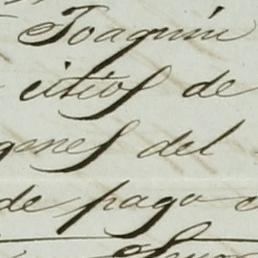 Joaquin
citios de
genes del
de pago